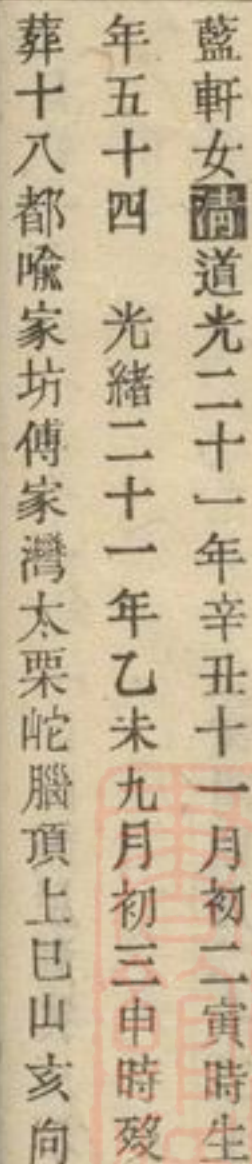 藍軒女清道光二十一年辛丑十一月初二寅時生
年五十四　光緒二十一年乙未九月初三申時歿
葬十八都喩家坊傅家灣太栗岮腦頂上巳山亥向